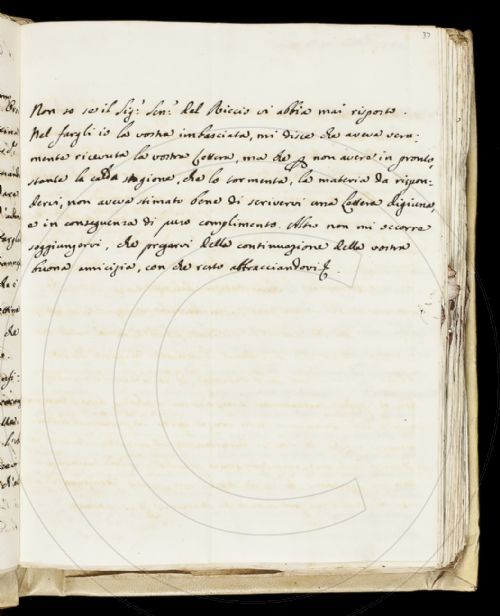 37
Non so se il Sig.r Sen.r del Riccio vi abbia mai risposto.
Nel fargli io la vostra imbasciata, mi disse che aveva vera-
mente ricevuta la vostra lettera, ma che p non avere in pronto,
stante la calda stagione, che lo tormenta, la materia da rispon-
dervi, non aveva stimato bene di scrivervi una lettera digiuna,
e in conseguenza di puro complimento. Altro non mi occorre
soggiungervi, che pregarvi della continuazione della vostra
buona amicizia, con che resto abbracciandovi